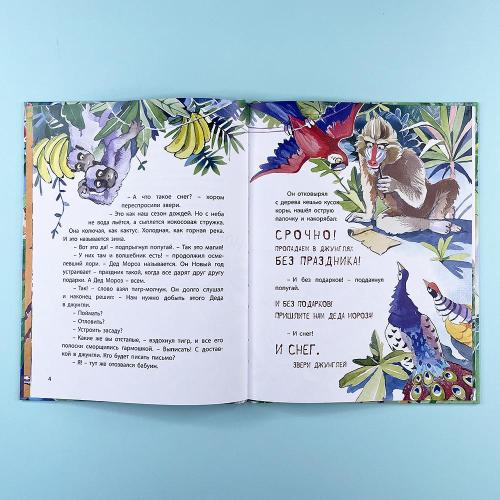 – А что такое снег? – хором
переспросили звери.
– Это как наш сезон дождей. Но с неба
не вода льётся, а сыплется кокосовая стружка.
Она колючая, как кактус. Холодная, как горная река.
И это называется зима.
– Вот это да! – подпрыгнул попугай. – Так это магия!
– У них там и волшебник есть! – продолжил осме-
левший лори. – Дед Мороз называется. Он Новый год
устраивает – праздник такой, когда все дарят друг другу
подарки. А Дед Мороз – всем.
– Так! – слово взял тигр-молчун. Он долго слушал
и наконец решил: – Нам нужно добыть этого Деда
в джунгли.
– Поймать?
– Отловить?
– Устроить засаду?
– Какие же вы отсталые, – вздохнул тигр, и все его
полоски сморщились гармошкой. – Выписать! С достав-
кой в джунгли. Кто будет писать письмо?
– Я! – тут же отозвался бабуин.
4
Он отковырял
с дерева кешью кусок
коры, нашёл острую
палочку и накорябал:
СРОЧНО!
ПРОПАДАЕМ В ДЖУНГЛЯХ
БЕЗ ПРАЗДНИКА!
– И без подарков! – поддакнул
попугай.
И БЕЗ ПОДАРКОВ!
ПРИШЛИТЕ НАМ ДЕДА МОРОЗА!
– И снег!
И СНЕГ.
ЗВЕРИ ДЖУНГЛЕЙ